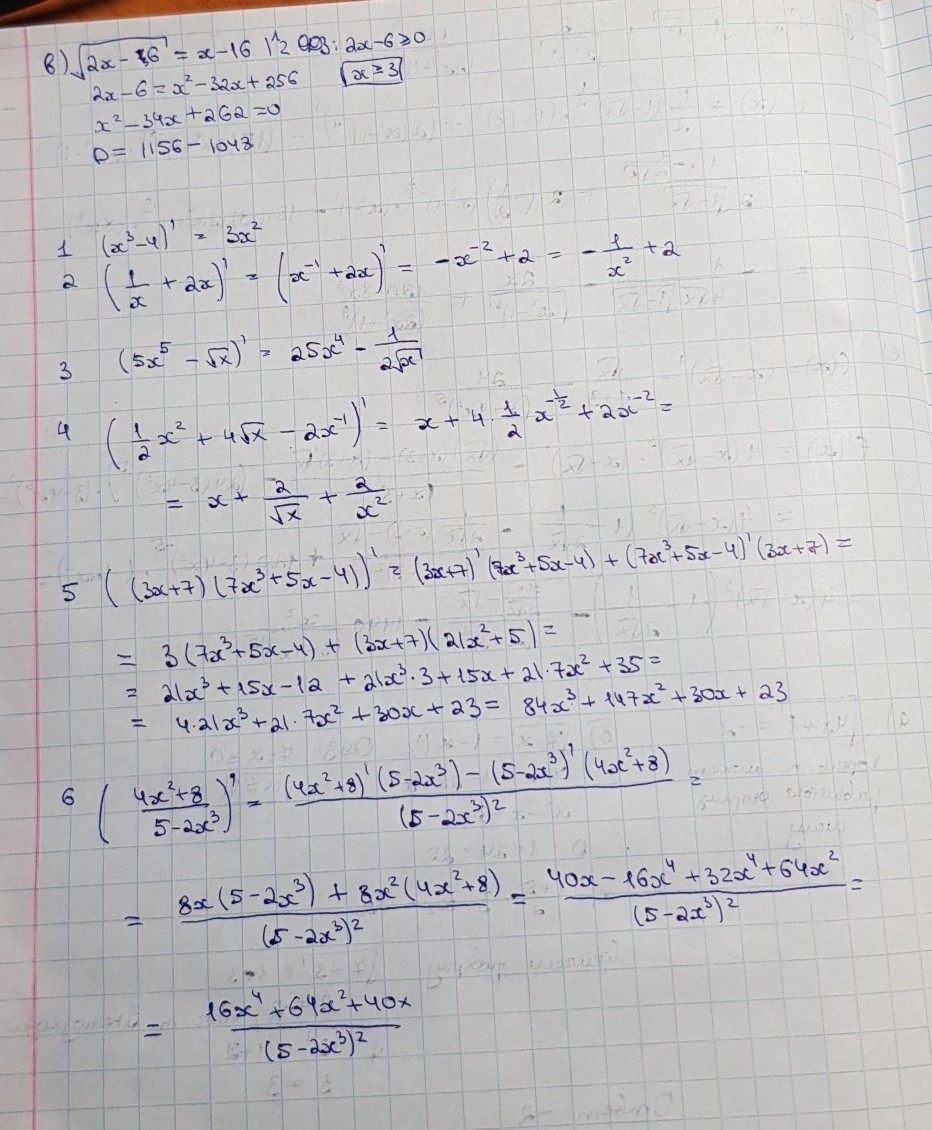 в) √(2x - 16) = x - 16 |^2 ОДЗ: 2x - 6 ≥ 0
2x - 6 = x² - 32x + 256 x ≥ 3
x² - 34x + 262 = 0
D = 1156 - 1048
1 (x³ - 4)' = 3x²
2 (1/x + 2x)' = (x⁻¹ + 2x)' = -x⁻² + 2 = -1/x² + 2
3 (5x⁵ - √x)' = 25x⁴ - 1/(2√x)
4 (1/2 x² + 4√x - 2x⁻¹)' = x + 4·1/2 x^(-1/2) + 2x⁻² =
= x + 2/√x + 2/x²
5 ((3x+7)(7x³+5x-4))' = (3x+7)'(7x³+5x-4) + (7x³+5x-4)'(3x+7) =
= 3(7x³+5x-4) + (3x+7)(21x²+5) =
= 21x³ + 15x - 12 + 21x³·3 + 15x + 21·7x² + 35 =
= 4·21x³ + 21·7x² + 30x + 23 = 84x³ + 147x² + 30x + 23
6 ((4x²+8)/(5-2x³))' = ((4x²+8)'(5-2x³) - (5-2x³)'(4x²+8))/(5-2x³)² =
= (8x(5-2x³) + 8x²(4x²+8))/(5-2x³)² = (40x - 16x⁴ + 32x⁴ + 64x²)/(5-2x³)² =
= (16x⁴ + 64x² + 40x)/(5-2x³)²